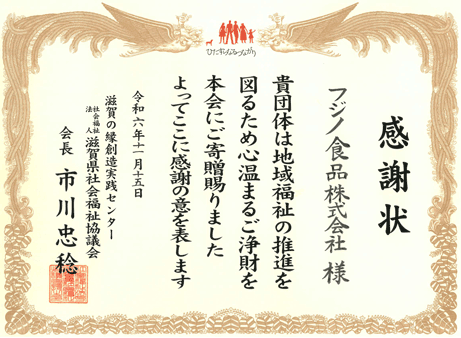 ひたすらなるつながり
感謝状
フジノ食品株式会社 様
貴団体は地域福祉の推進を
図るため心温まるご浄財を
本会にご寄贈賜りました
よってここに感謝の意を表します
令和六年十一月十五日
滋賀の縁創造実践センター
社会福祉法人 滋賀県社会福祉協議会
会長 市川忠稔